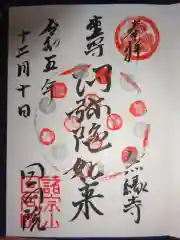 奉拝
無縁寺
阿弥陀如来
令和五年
十二月十日
回向院
諸宗山